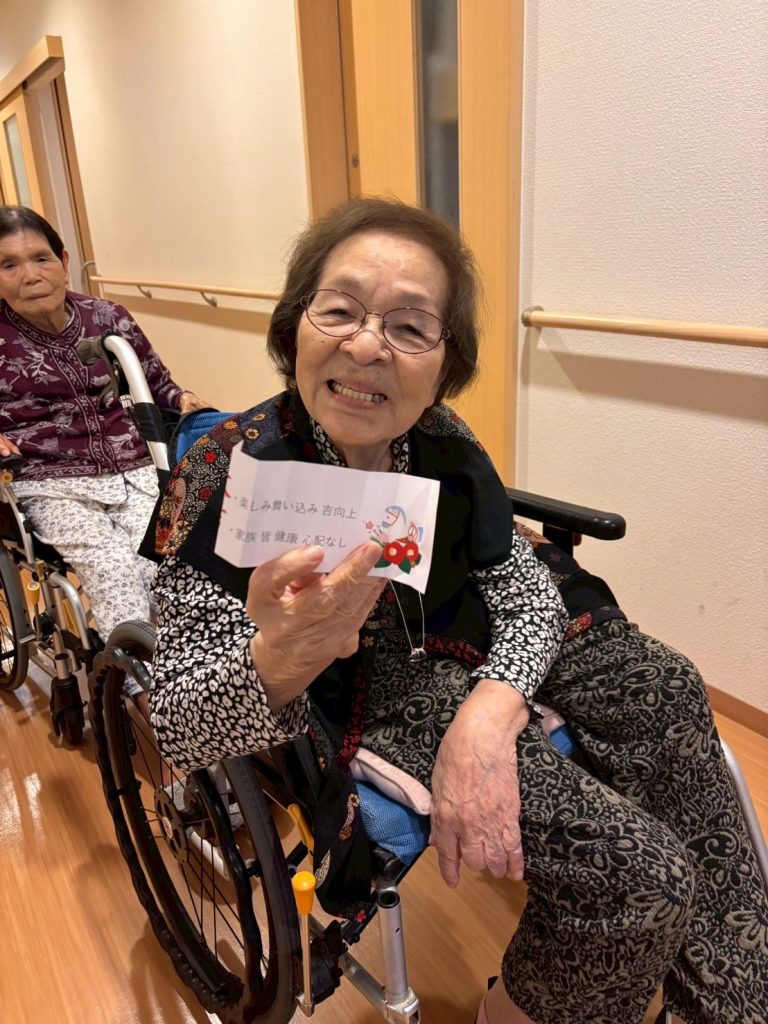 ・楽しみ舞い込み 吉向上
・家族 皆 健康 心配なし